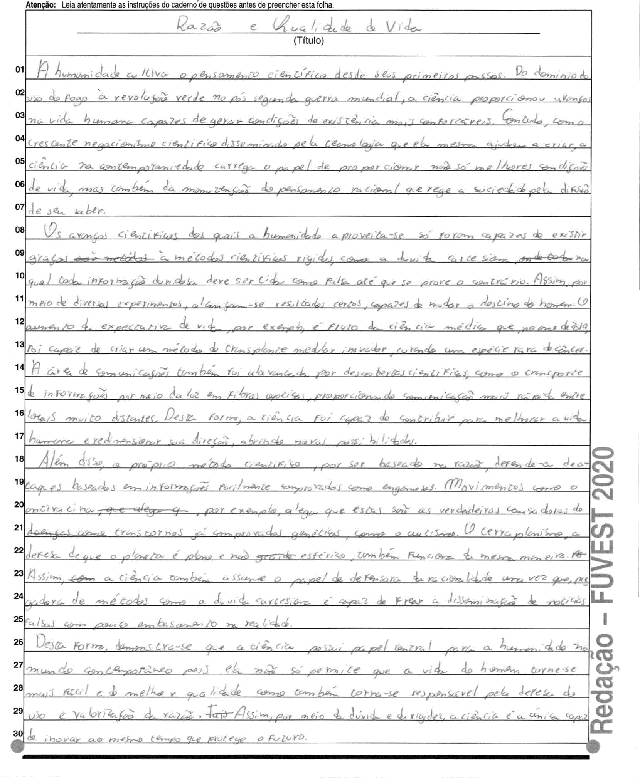 Atenção: Leia atentamente as instruções do caderno de questões antes de preencher esta folha.
Razão e Qualidade de Vida
(Título)
01 A humanidade cultiva o pensamento científico desde seus primeiros passos. Do domínio do
02 uso do fogo à revolução verde no pós segunda guerra mundial, a ciência proporcionou avanços
03 na vida humana capazes de gerar condições de existência mais confortáveis. Contudo, com o
04 crescente negacionismo científico disseminado pela tecnologia que ela mesma ajudou a criar, a
05 ciência na contemporaneidade carrega o papel de proporcionar não só melhores condições
06 de vida, mas também da manutenção do pensamento racional que rege a sociedade pela difusão
07 de seu saber.
08 Os avanços científicos dos quais a humanidade aproveita-se só foram capazes de existir
09 graças à métodos científicos rígidos, como a duvida cartesiana, na
10 qual toda informação duvidosa deve ser tida como falsa até que se prove o contrário. Assim, por
11 meio de diversos experimentos, alcançam-se resultados certos, capazes de mudar o destino do homem. O
12 aumento da expectativa de vida, por exemplo, é fruto da ciência médica que, no ano de 2019,
13 foi capaz de criar um método de transplante medular inovador, curando uma espécie rara de câncer.
14 A área de comunicações também foi alavancada por descobertas científicas, como o transporte
15 de informações por meio da luz em fibras opticas, proporcionando comunicação mais rápida entre
16 locais muito distantes. Desta forma, a ciência foi capaz de contribuir para melhorar a vida
17 humana e redimensionar sua direção, abrindo novas possibilidades.
18 Além disso, o próprio método científico, por ser baseado na razão, defende-a de a-
19 taques baseados em informações facilmente comprovadas como enganosas. Movimentos como o
20 antivacina, por exemplo, alega que estas são as verdadeiras causadoras de
21 transtornos já comprovados genéticos, como o autismo. O terraplanismo, a
22 defesa de que o planeta é plano e não esférico, também funciona da mesma maneira.
23 Assim, a ciência também assume o papel de defensora da racionalidade uma vez que, pre-
24 gadora de métodos como a duvida cartesiana é capaz de frear a disseminação de notícias
25 falsas com pouco embasamento na realidade.
26 Desta forma, demonstra-se que a ciência possui papel central para a humanidade no
27 mundo contemporâneo pois ela não só permite que a vida do homem torne-se
28 mais fácil e de melhor qualidade como também torna-se responsável pela defesa do
29 uso e valorização da razão. Assim, por meio da dúvida e da rigidez, a ciência é a única capaz
30 de inovar ao mesmo tempo que protege o futuro.
Redação – FUVEST 2020